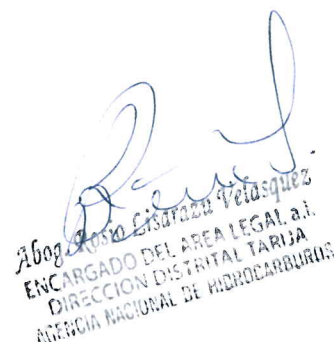 Abog. Rosio Lisarazu Velasquez
ENCARGADO DEL AREA LEGAL a.i.
DIRECCION DISTRITAL TARIJA
AGENCIA NACIONAL DE HIDROCARBUROS